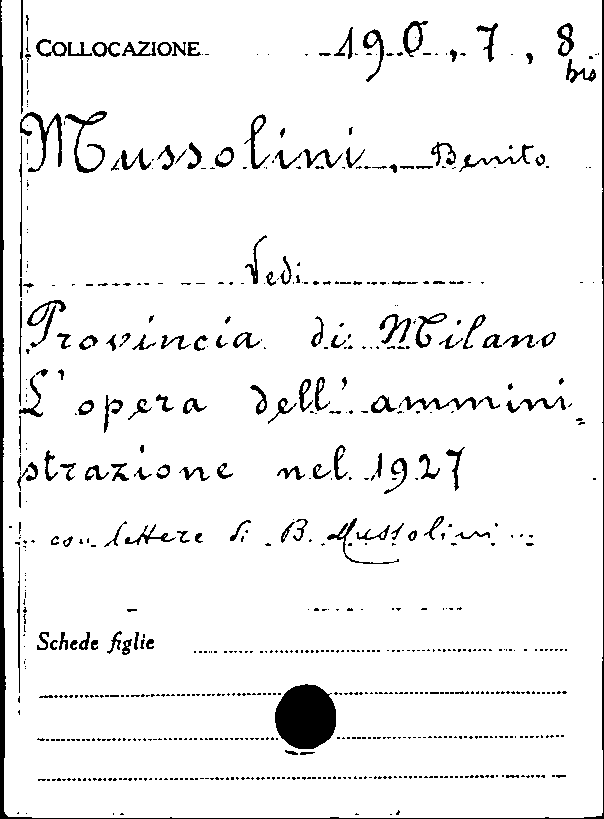 COLLOCAZIONE 190, 7, 8
bis
Mussolini, Benito
Vedi
Provincia di Milano
L'opera dell'ammini=
strazione nel 1927
... con lettere di B. Mussolini ...
Schede figlie